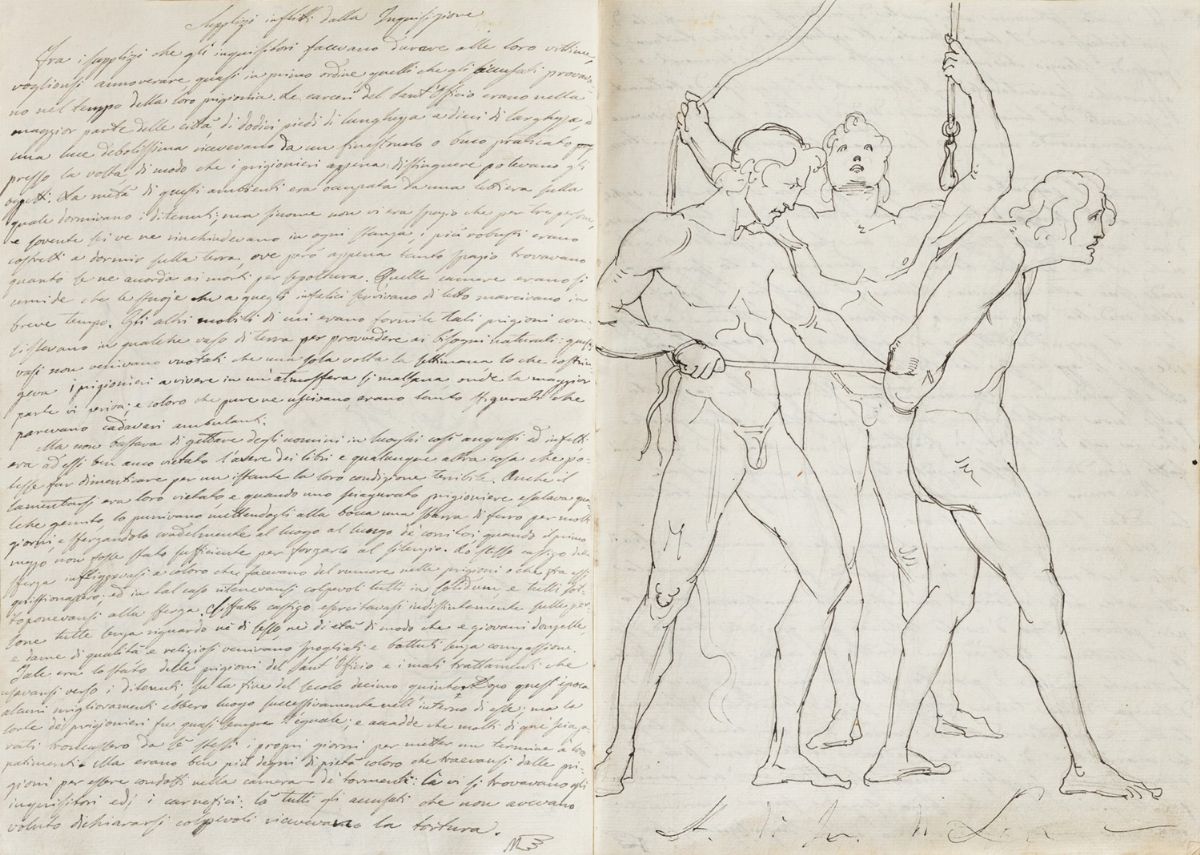 Supplizi inflitti dalla Inquisizione
Fra i supplizi che gli inquisitori facevano durare alle loro vittime,
voglionsi annoverare quasi in primo ordine quelli che gli accusati prova-
no nel tempo della loro prigionia. Le carceri del Sant'Officio erano nella
maggior parte delle città di dodici piedi di lunghezza e dieci di larghezza, e
una luce debolissima ricevevano da un finestruolo o buco praticato
presso la volta di modo che i prigionieri appena distinguere potevano gli
oggetti. La metà di questi ambienti era occupata da una lettiera sulla
quale dormivano i ditenuti; ma siccome non vi era spazio che per tre persone,
e sovente sei ve ne rinchiudevano in ogni stanza, i più robusti erano
costretti a dormir sulla terra, ove però appena tanto spazio trovavano
quanto se ne accorda ai morti per sepoltura. Quelle camere erano sì
umide che le stuoje che a quegli infelici servivano di letto marcivano in
breve tempo. Gli altri mobili di cui erano fornite tali prigioni con-
sistevano in qualche vaso di terra per provvedere ai bisogni naturali: quei
vasi non venivano vuotati che una sola volta la settimana lo che costrin-
geva i prigionieri a vivere in un'atmosfera sì malsana onde la maggior
parte vi periva; e coloro che pure ne uscivano erano tanto sfigurati che
parevano cadaveri ambulanti.
Ma non bastava di gettare degli uomini in luoghi così angusti ed infetti
era ad essi ben anco vietato l'avere dei libri e qualunque altra cosa che po-
tesse far dimenticare per un istante la loro condizione terribile. Anche il
lamentarsi era loro vietato e quando uno sciagurato prigioniere esalava qual
che gemito lo punivano mettendogli alla bocca una sbarra di ferro per molti
giorni, e sferzandolo crudelmente al luogo al lungo de' corritoi quando il primo
mezzo non fosse stato sufficiente per forzarlo al silenzio. Lo stesso castigo della
sferza infliggevasi a coloro che facevano del rumore nelle prigioni o che fra essi
quistionassero; ed in tal caso ritenevansi colpevoli tutti in solidum e tutti sot-
toponevansi alla sferza. Siffatto castigo esercitavasi indistintamente sulle per-
sone tutte senza riguardo nè di sesso nè di età di modo che e giovani donzelle,
e dame di qualità e religiosi venivano spogliati e battuti senza compassione.
Tale era lo stato delle prigioni del Sant'Ufficio e i mali trattamenti che
usavansi verso i ditenuti su la fine del secolo decimo quinto. Dopo quest'epoca
alcuni miglioramenti ebbero luogo successivamente nell'interno di esse; ma la
sorte dei prigionieri fu quasi sempre eguale; e accadde che molti di que' sciagu-
rati troncassero da sè stessi i propri giorni per metter un termine a loro
patimenti. Ma erano ben più degni di pietà coloro che traevansi dalle pri-
gioni per essere condotti nella camera de' tormenti: là vi si trovavano gli
inquisitori ed i carnefici; là tutti gli accusati che non avevano
voluto dichiararsi colpevoli ricevevano la tortura.